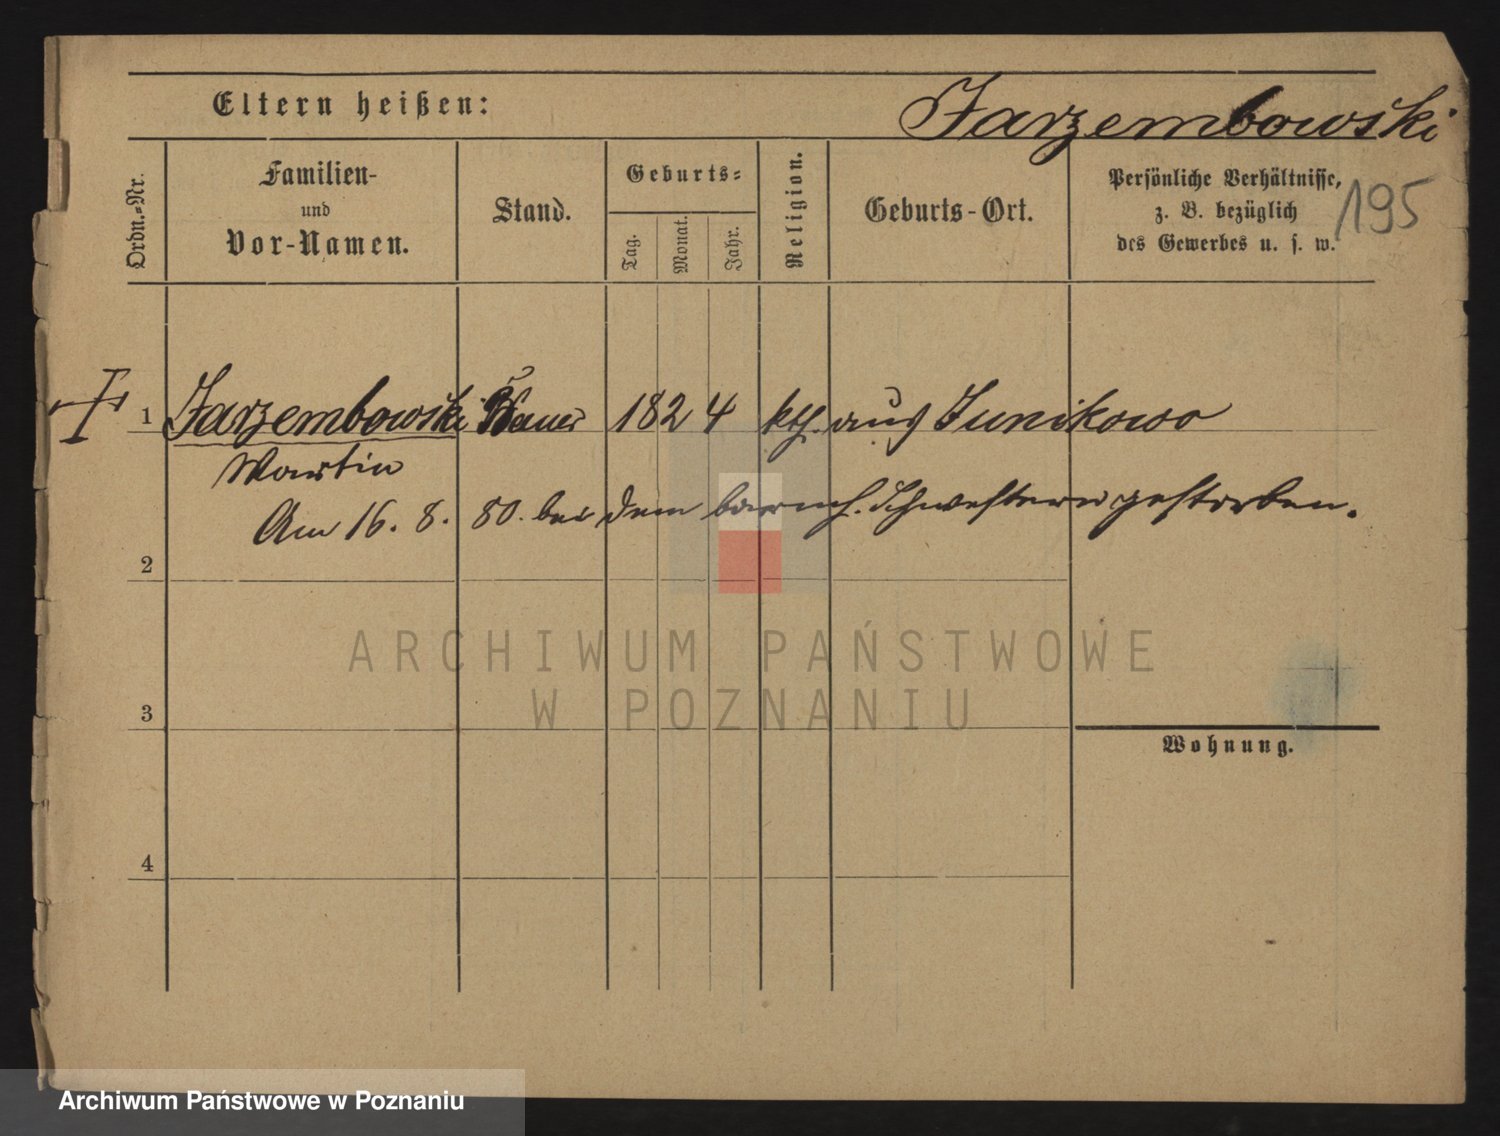 Eltern heißen:
Jarzembowski
Ordn.-Nr.
Familien-
und
Vor-Namen.
Stand.
Geburts-
Tag.
Monat.
Jahr.
Religion.
Geburts-Ort.
Persönliche Verhältnisse,
z. B. bezüglich
des Gewerbes u. s. w.
195
1 Jarzembowski Bauer 1824 kth. aus Junikowo
Martin
Am 16. 8. 80. bei dem barmh. Schwestern gestorben.
2
ARCHIWUM PAŃSTWOWE
W POZNANIU
3
Wohnung.
4
Archiwum Państwowe w Poznaniu